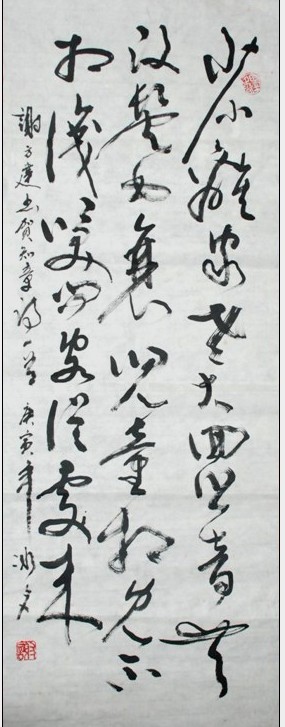 少小離家老大回鄉音無
改鬢毛衰兒童相見不
相識笑問客從處来
謝書賀知章詩一首 庚寅年